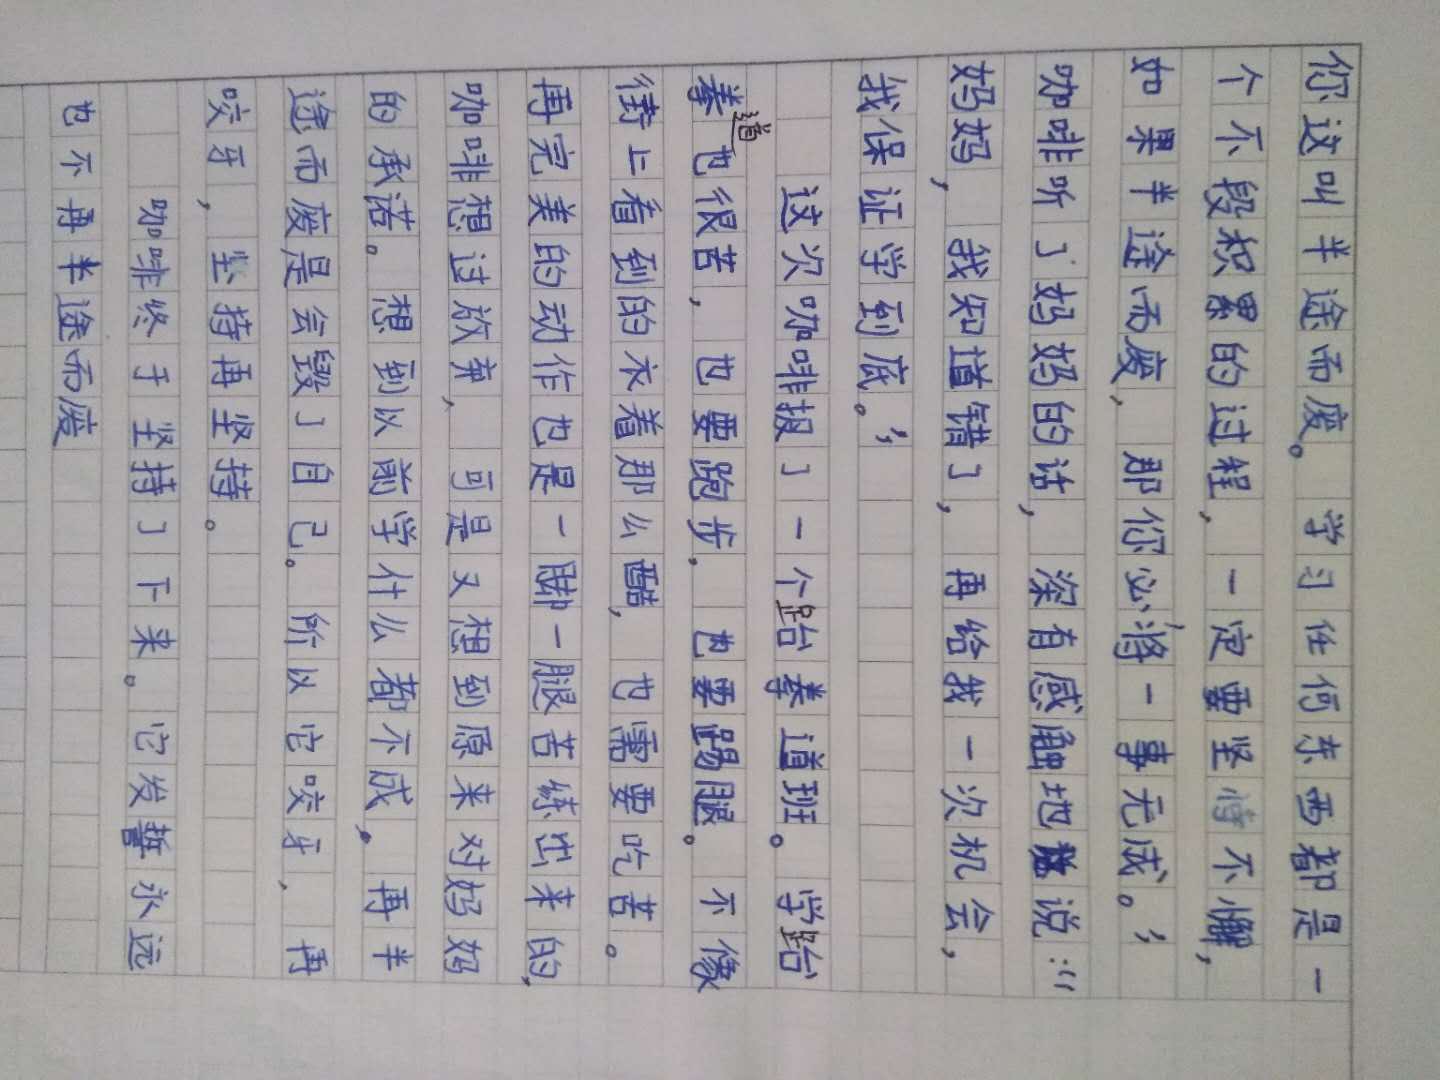 你这叫半途而废。学习任何东西都是一
个不段积累的过程，一定要坚持不懈，
如果半途而废，那你必将一事无成。”
咖啡听了妈妈的话，深有感触地说：“
妈妈，我知道错了，再给我一次机会，
我保证学到底。”
这次咖啡报了一个跆拳道班。学跆
拳道也很苦，也要跑步，也要踢腿。不像
街上看到的衣着那么酷，也需要吃苦。
再完美的动作也是一脚一腿苦练出来的，
咖啡想过放弃，可是又想到原来对妈妈
的承诺。想到以前学什么都不成，再半
途而废是会毁了自己。所以它咬牙，再
咬牙，坚持再坚持。
咖啡终于坚持了下来。它发誓永远
也不再半途而废